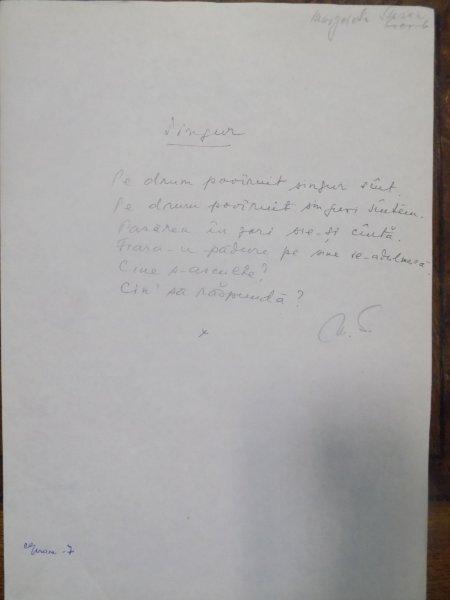 Singur
Pe drum povîrnit singur sînt.
Pe drum povîrnit singuri sîntem.
Pasărea în zori sie-și cîntă.
Fiara-n pădure pe sine se-adulmecă.
Cine s-asculte?
Cin' să răspundă?
x